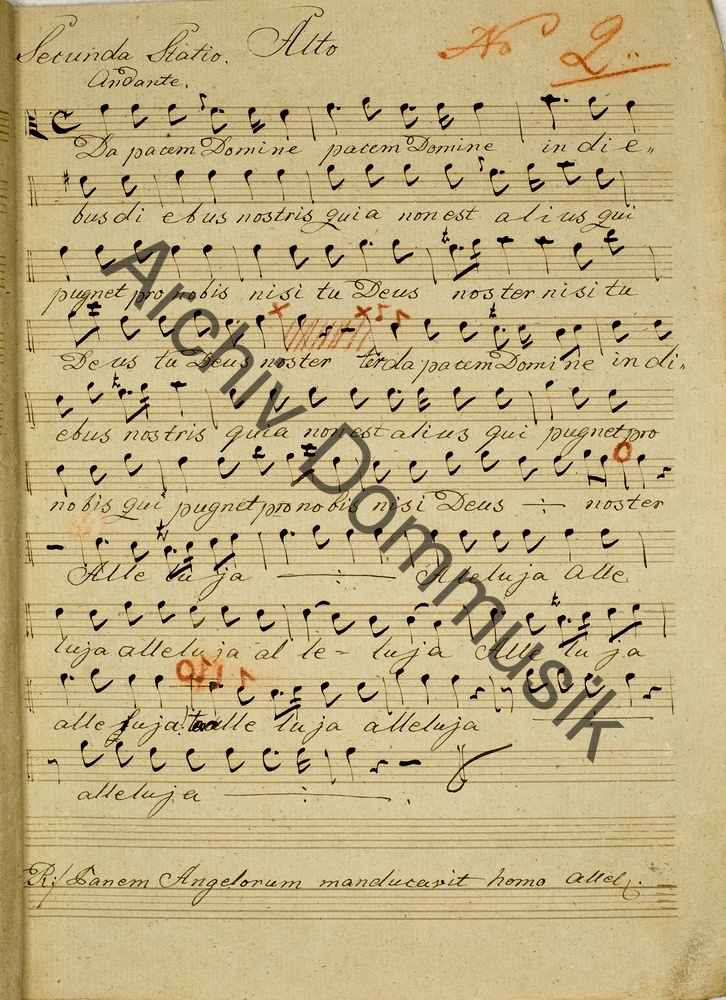 Secunda Statio. Alto
No 2.
Andante.
Da pacem Domine pacem Domine in die„
bus di ebus nostris quia non est alius qui
pugnet pro nobis nisi tu Deus noster nisi tu
Deus tu Deus noster da pacem Domine in di„
ebus nostris quia non est alius qui pugnet pro
nobis qui pugnet pro nobis nisi Deus noster
Alleluja Alleluja alle
luja alleluja alle= luja Alleluja
alleluja alleluja alleluja
alleluja
R:/ Panem Angelorum manducavit homo allel:
Archiv Dommusik